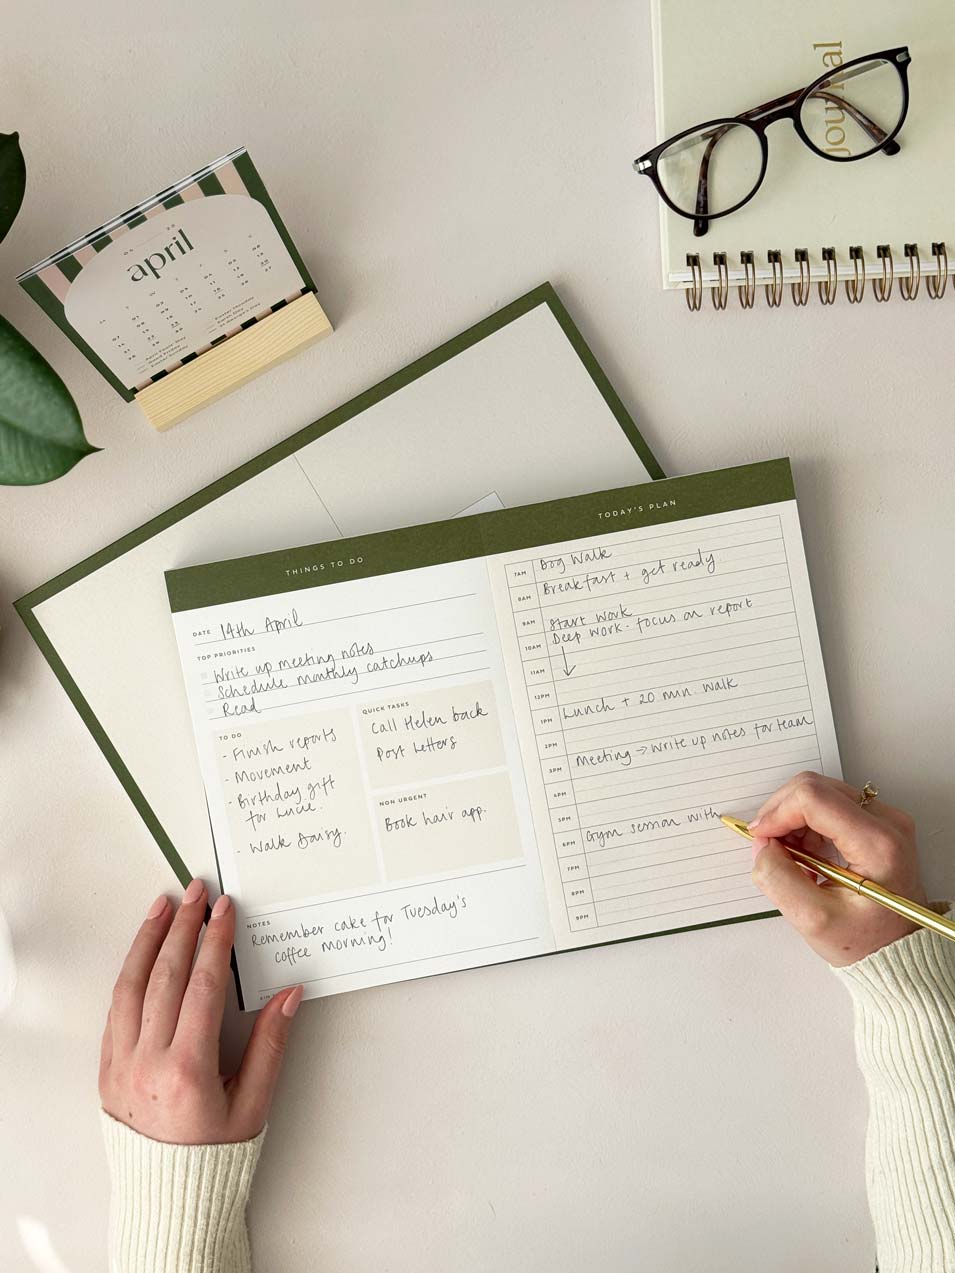 Journal
april
THINGS TO DO
DATE 14th April
TOP PRIORITIES
Write up meeting notes
Schedule monthly catchups
Read
TO DO
- Finish reports
- Movement
- Birthday gift
for Lucie.
- Walk Daisy.
QUICK TASKS
Call Helen back
Post letters
NON URGENT
Book hair app.
NOTES
Remember cake for Tuesday's
coffee morning!
TODAY'S PLAN
7AM Dog Walk
8AM Breakfast + get ready
9AM Start work
10AM Deep work - focus on report
11AM ↓
12PM
1PM Lunch + 20 min walk
2PM
3PM Meeting → write up notes for team
4PM
5PM
6PM Gym session with
7PM
8PM
9PM